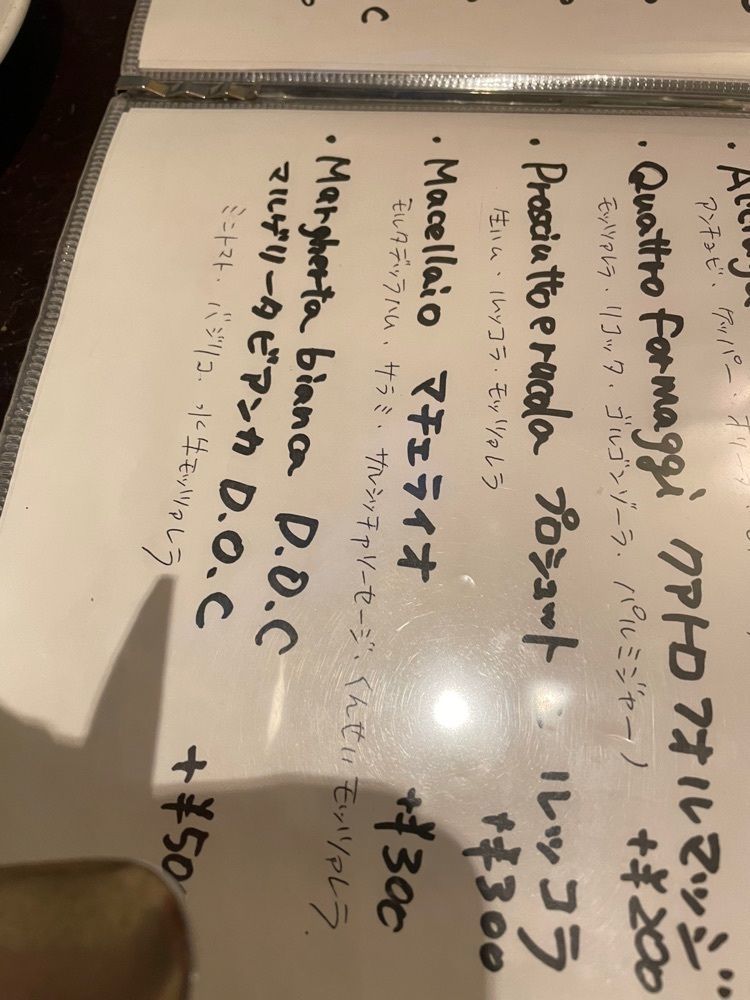 アンチョビ、ケッパー、オリーブ
・Quattro formaggi クアトロフォルマッジ…
モッツァレラ・リコッタ・ゴルゴンゾーラ・パルミジャーノ
+¥200
・Prosciutto e rucola プロシュット ルッコラ
生ハム・ルッコラ・モッツァレラ
+¥300
・Macellaio マチェライオ
モルタデッラハム、サラミ・サルシッチャソーセージ、くんせいモッツァレラ
+¥300
・Margherta bianca D.O.C
マルゲリータビアンカ D.O.C
ミニトマト・バジリコ・水牛モッツァレラ